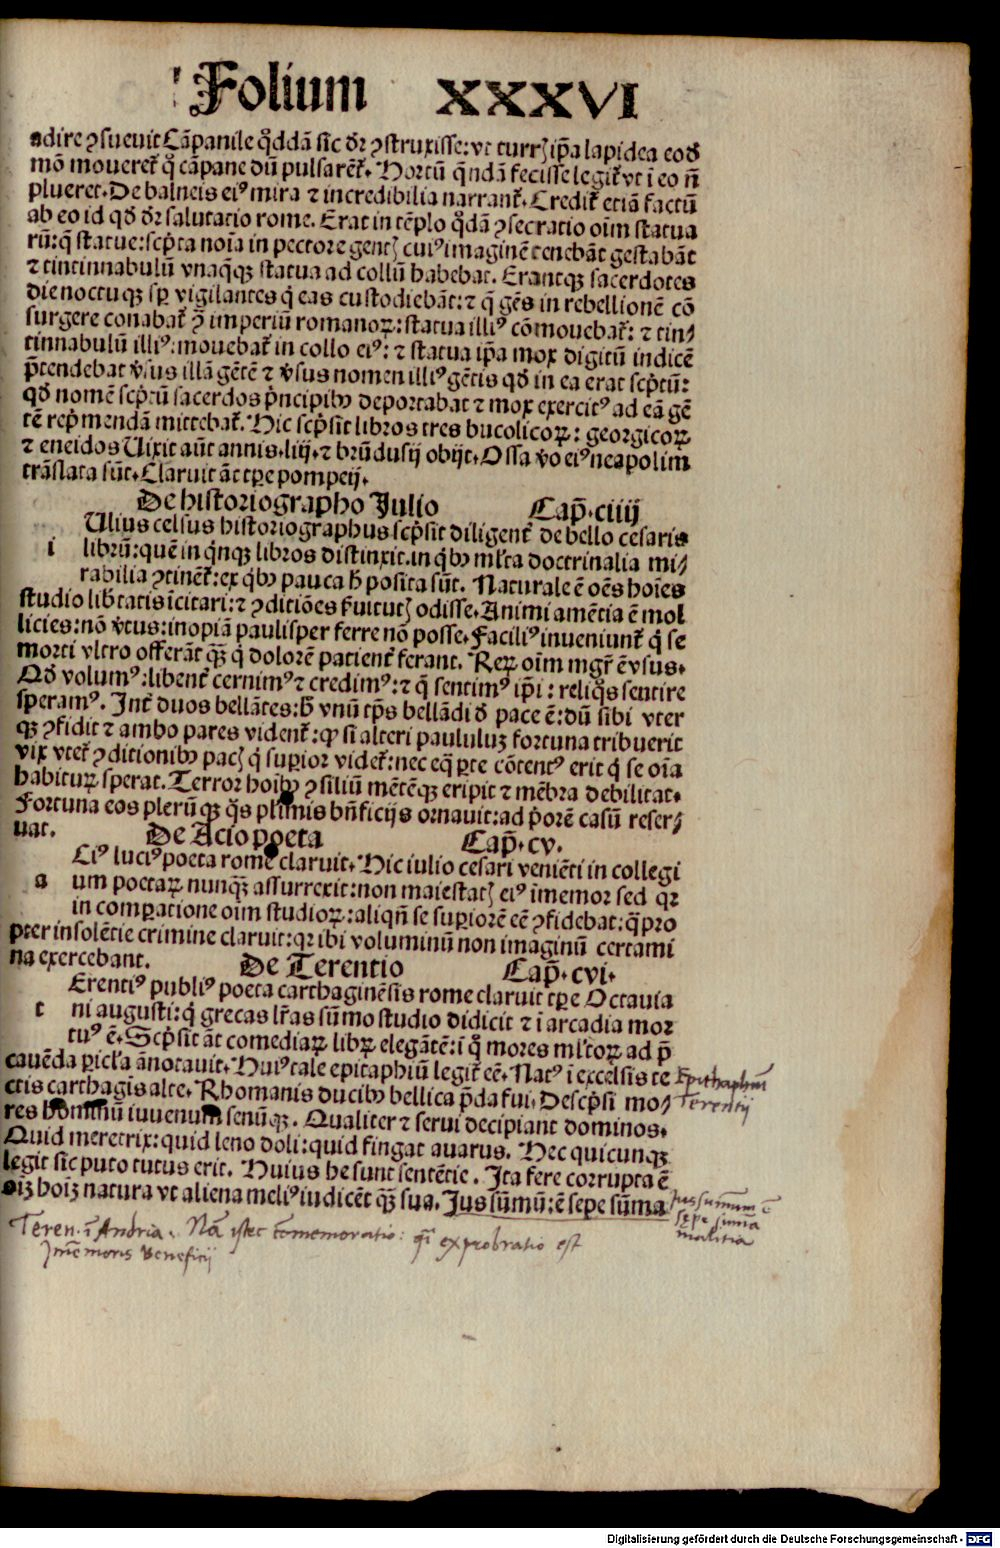 Folium XXXVI
adire ꝯsueuit Cāpanile qͦddā sic dr̄ ꝯstruxisse: vt turrꝭ ip̄a lapidea eod̄
mō mouereť qͦ cāpane dū pulsarēť. Hortū qͦndā fecisse legiť vt ī eo nō
plueret. De balneis eiꝰ mira ⁊ incredibilia narranť. Crediť etiā factū
ab eo id qd̄ dr̄ salutatio rome. Erat in tēplo qͦdā ꝯsecratio oīm statua
rū: q̄ statue: scp̄ta noīa in pectore gentꝭ cuiꝰ imaginē tenebāt gestabāt
⁊ tintinnabulū vnaq̄qꝫ statua ad collū habebat. Erantqꝫ sacerdotes
die noctuqꝫ sp̱ vigilantes qͥ eas custodiebāt: ⁊ q̄ gēs in rebellionē cō
surgere conabať ꝯ̄ imperiū romanoꝝ: statua illiꝰ cōmouebať: ⁊ tin⸗
tinnabulū illiꝰ: mouebať in collo eiꝰ: ⁊ statua ip̄a mox digitū indicē
p̄tendebat v̓sus illā gētē ⁊ v̓sus nomen illiꝰ gētis qd̄ in ea erat scp̄tū:
qd̄ nomē scp̄tū sacerdos pͥncipibꝰ deportabat ⁊ mox exercitꝰ ad eā gē
tē rep̱mendā mittebať. Hic scp̄sit libros tres bucolicoꝝ: georgicoꝝ
⁊ eneidos Uixit aūt annis. liij. ⁊ brūdusij obijt. Ossa v̓o eiꝰ neapolim
trāslata sūt. Claruit āt tp̱e pompeij.
De historiographo Julio Cap̄. ciiij
i Ulius celsus historiographus scp̄sit diligenť de bello cesaris
librū: quē in qͥnqꝫ libros distinxit. in qͥbꝰ ml̓ta doctrinalia mi⸗
rabilia ꝯtinēť: ex qͥbꝰ pauca h̄ posita sūt. Naturale ē oēs hoīes
studio lib̓tatis īcitari: ⁊ ꝯditiōes s̓uitutꝭ odisse. Animi amētia ē mol
licies: nō v̓tus: inopiā paulisper ferre nō posse. Faciliꝰ inueniunť qͥ se
morti vltro offerāt qͣꝫ qͥ dolorē patienť ferant. Reꝝ oīm mgr̄ ē vsus.
Qd̄ volumꝰ: libenť cernimꝰ ⁊ credimꝰ: ⁊ q̄ sentimꝰ ip̄i: reliqͦs sentire
speramꝰ. Inť duos bellātes: h̄ vnū tp̄s bellādi d̄ pace ē: dū sibi vter
qꝫ ꝯfidit ⁊ ambo pares videnť: qꝙ si alteri paululuꝫ fortuna tribuerit
vix vteť ꝯditionibꝰ pacꝭ qͥ sup̱ior videť: nec eq̄ p̱te cōtentꝰ erit qͥ se oīa
habituꝝ sperat. Terror hoībꝰ ꝯsiliū mētēqꝫ eripit ⁊ mēbra debilitat.
Fortuna eos plerūqꝫ qͦs pl̓imis bn̄ficijs ornauit: ad pͥorē casū reser⸗
uat. De Acio poeta Cap̄. cv.
a Ciꝰ luciꝰ poeta rome claruit. Hic iulio cesari veniēti in collegi
um poetaꝝ nunqͣꝫ assurrexit: non maiestatꝭ eiꝰ īmemor sed qꝛ
in comp̱atione oīm studioꝝ: aliqn̄ se sup̱iorē eē ꝯfidebat: q̄ pro
pter insolētie crimine claruit: qꝛ ibi voluminū non imaginū certami
na exercebant. De Terentio Cap̄. cvi.
t Erentiꝰ publiꝰ poeta carthaginēsis rome claruit tp̱e Octauia
ni augusti: qͥ grecas lr̄as sūmo studio didicit ⁊ ī arcadia mor
tuꝰ ē. Scp̄sit āt comediaꝝ libꝝ elegātē: ī qͦ mores ml̓toꝝ ad p̄
cauēda p̱icl̓a ānotauit. Huiꝰ tale epitaphiū legiť eē. Natꝰ ī excelsis te
ctis carthagīs alte. Rhomanis ducibꝰ bellica p̄da fui. Descp̄si mo⸗
res hominū iuuenum senūqꝫ. Qualiter ⁊ serui decipiant dominos.
Quid meretrix: quid leno doli: quid fingat auarus. Hec quicunqꝫ
legit sic puto tutus erit. Huius he sunt sentētie. Ita fere corrupta ē
oīꝫ hoīꝫ natura vt aliena meliꝰ iudicēt qͣꝫ sua. Jus sūmū: ē sepe sūma
Epithaphiū
Terentij
Jus summum ē
sepe suma
malitia
Teren. ī Andria. Nā istec cōmemoratio: qͣi exprobratio est
Jmēmoris Beneficij
Digitalisierung gefördert durch die Deutsche Forschungsgemeinschaft - DFG